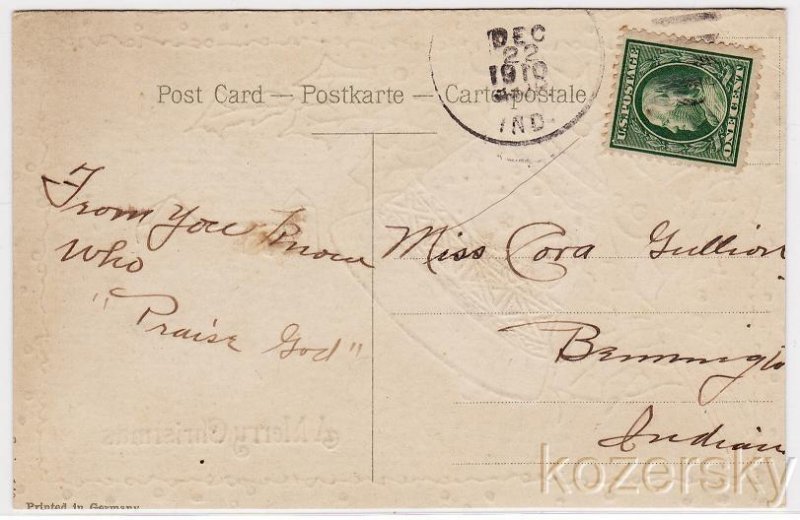 DEC
22
1910
IND.
U.S. POSTAGE
ONE CENT
Post Card — Postkarte — Carte postale
From you know
Who
"Praise God"
Miss Cora Gullion
Bennningto
Indian
A Merry Christmas
Printed in Germany
kozersky